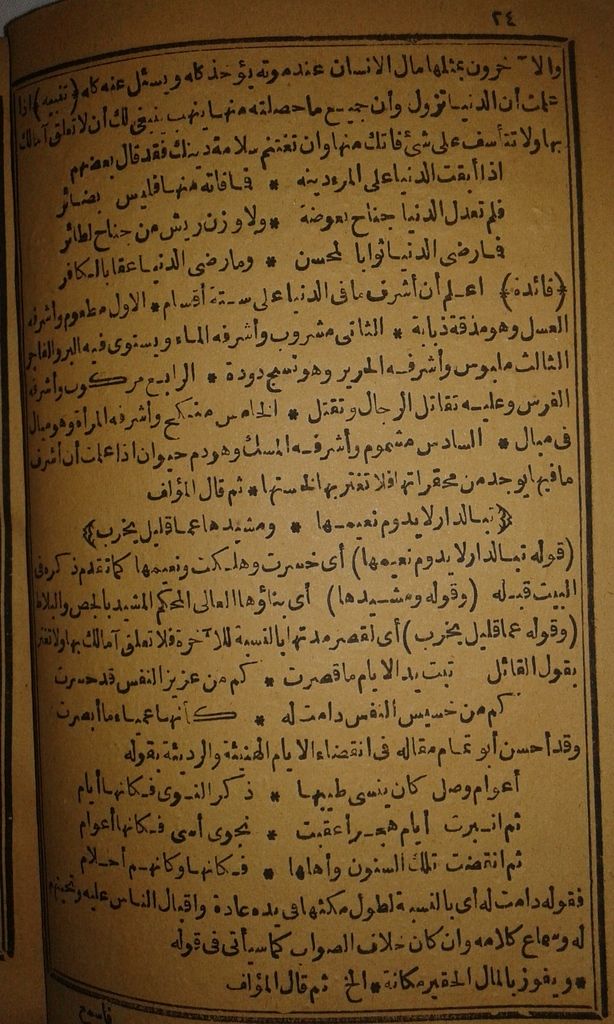 ٢٤
والآخرون بمثلها مال الانسان عند موته يؤخذ كله ويسئل عنه كله (تنبيه) اذا
علمت أن الدنيا تزول وأن جميع ما حصلته منها ينهب ينبغي لك أن لا تعلق آمالك
بها ولا تتأسف على شئ فاتك منها وان تغتنم سلامة دينك فقد قال بعضهم
اذا أبقت الدنيا على المرء دينه * فما فاته منها فليس بضائر
فلم تعدل الدنيا جناح بعوضة * ولا وزن ريش من جناح لطائر
فما رضى الدنيا ثوابا لمحسن * وما رضى الدنيا عقابا لكافر
(فائدة) اعلم أن أشرف ما فى الدنيا على ستة أقسام * الاول مطعوم وأشرفه
العسل وهو مذقة ذبابة * الثانى مشروب وأشرفه الماء ويستوى فيه البر والفاجر
الثالث ملبوس وأشرفه الحرير وهو نسج دودة * الرابع مركوب وأشرفه
الفرس وعليه تقاتل الرجال وتقتل * الخامس منكح وأشرفه المرأة وهو مبال
فى مبال * السادس مشموم وأشرفه المسك وهو دم حيوان اذا علمت أن أشرف
ما فيها يوجد من محقراتها فلا تغتر بها لخستها * ثم قال المؤلف
(تبا لدار لا يدوم نعيمها * ومشيدها عما قليل يخرب)
(قوله تبا لدار لا يدوم نعيمها) أى خسرت وهلكت ونعيمها كما تقدم ذكره فى
البيت قبله (وقوله ومشيدها) أى بناؤها العالى المحكم المشيد بالجص والبلاط
(وقوله عما قليل يخرب) أى لقصر مدتها بالنسبة للآخره فلا تعلق آمالك بها ولا تغتر
بقول القائل تبت يد الايام ما قصرت * كم من عزيز النفس قد حسرت
كم من خسيس النفس دامت له * كأنها عمياء ما أبصرت
وقد أحسن أبو تمام مقاله فى انقضاء الايام الهنيئة والرديئة بقوله
أعوام وصل كان ينسى طيبها * ذكر النوى فكانها أيام
ثم انبرت أيام هجر أعقبت * نجوى أسى فكانها أعوام
ثم انقضت تلك السنون وأهلها * فكانها وكانهم أحلام
فقوله دامت له أى بالنسبة لطول مكثها فى يده عادة واقبال الناس عليه
له وسماع كلامه وان كان خلاف الصواب كما سيأتى فى قوله
* ويفوز بالمال الحقير مكانة * الخ ثم قال المؤلف